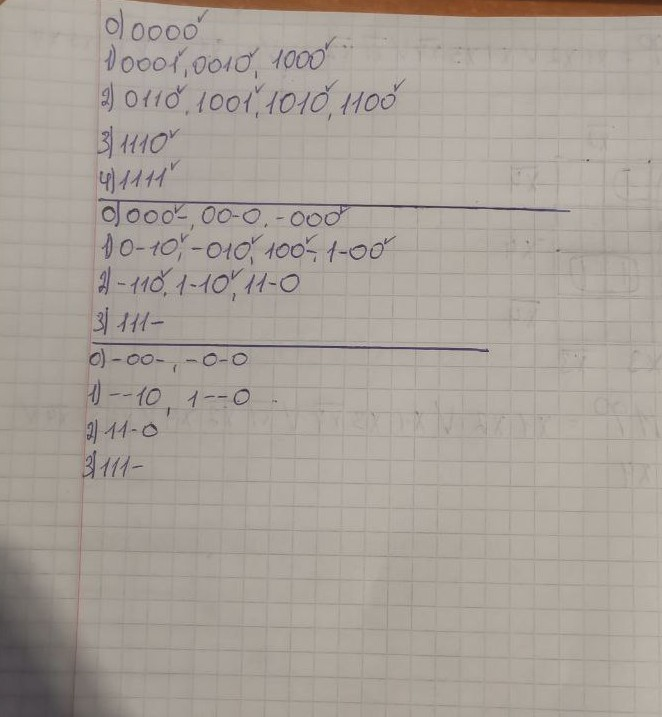 0) 0000✓
1) 0001✓, 0010✓, 1000✓
2) 0110✓, 1001✓, 1010✓, 1100✓
3) 1110✓
4) 1111✓
0) 000-✓, 00-0, -000✓
1) 0-10✓, -010✓, 100-✓, 1-00✓
2) -110✓, 1-10✓, 11-0
3) 111-
0) -00-, -0-0
1) --10, 1--0
2) 11-0
3) 111-